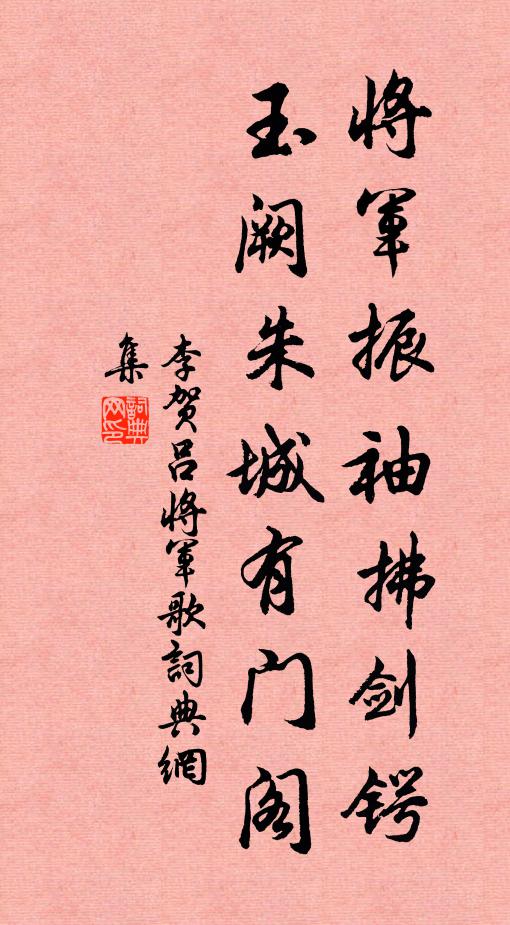 将軍振袖拂剑锷
玉阙朱城有门阁
李贺吕将軍歌詞典網
集
詞典
网印